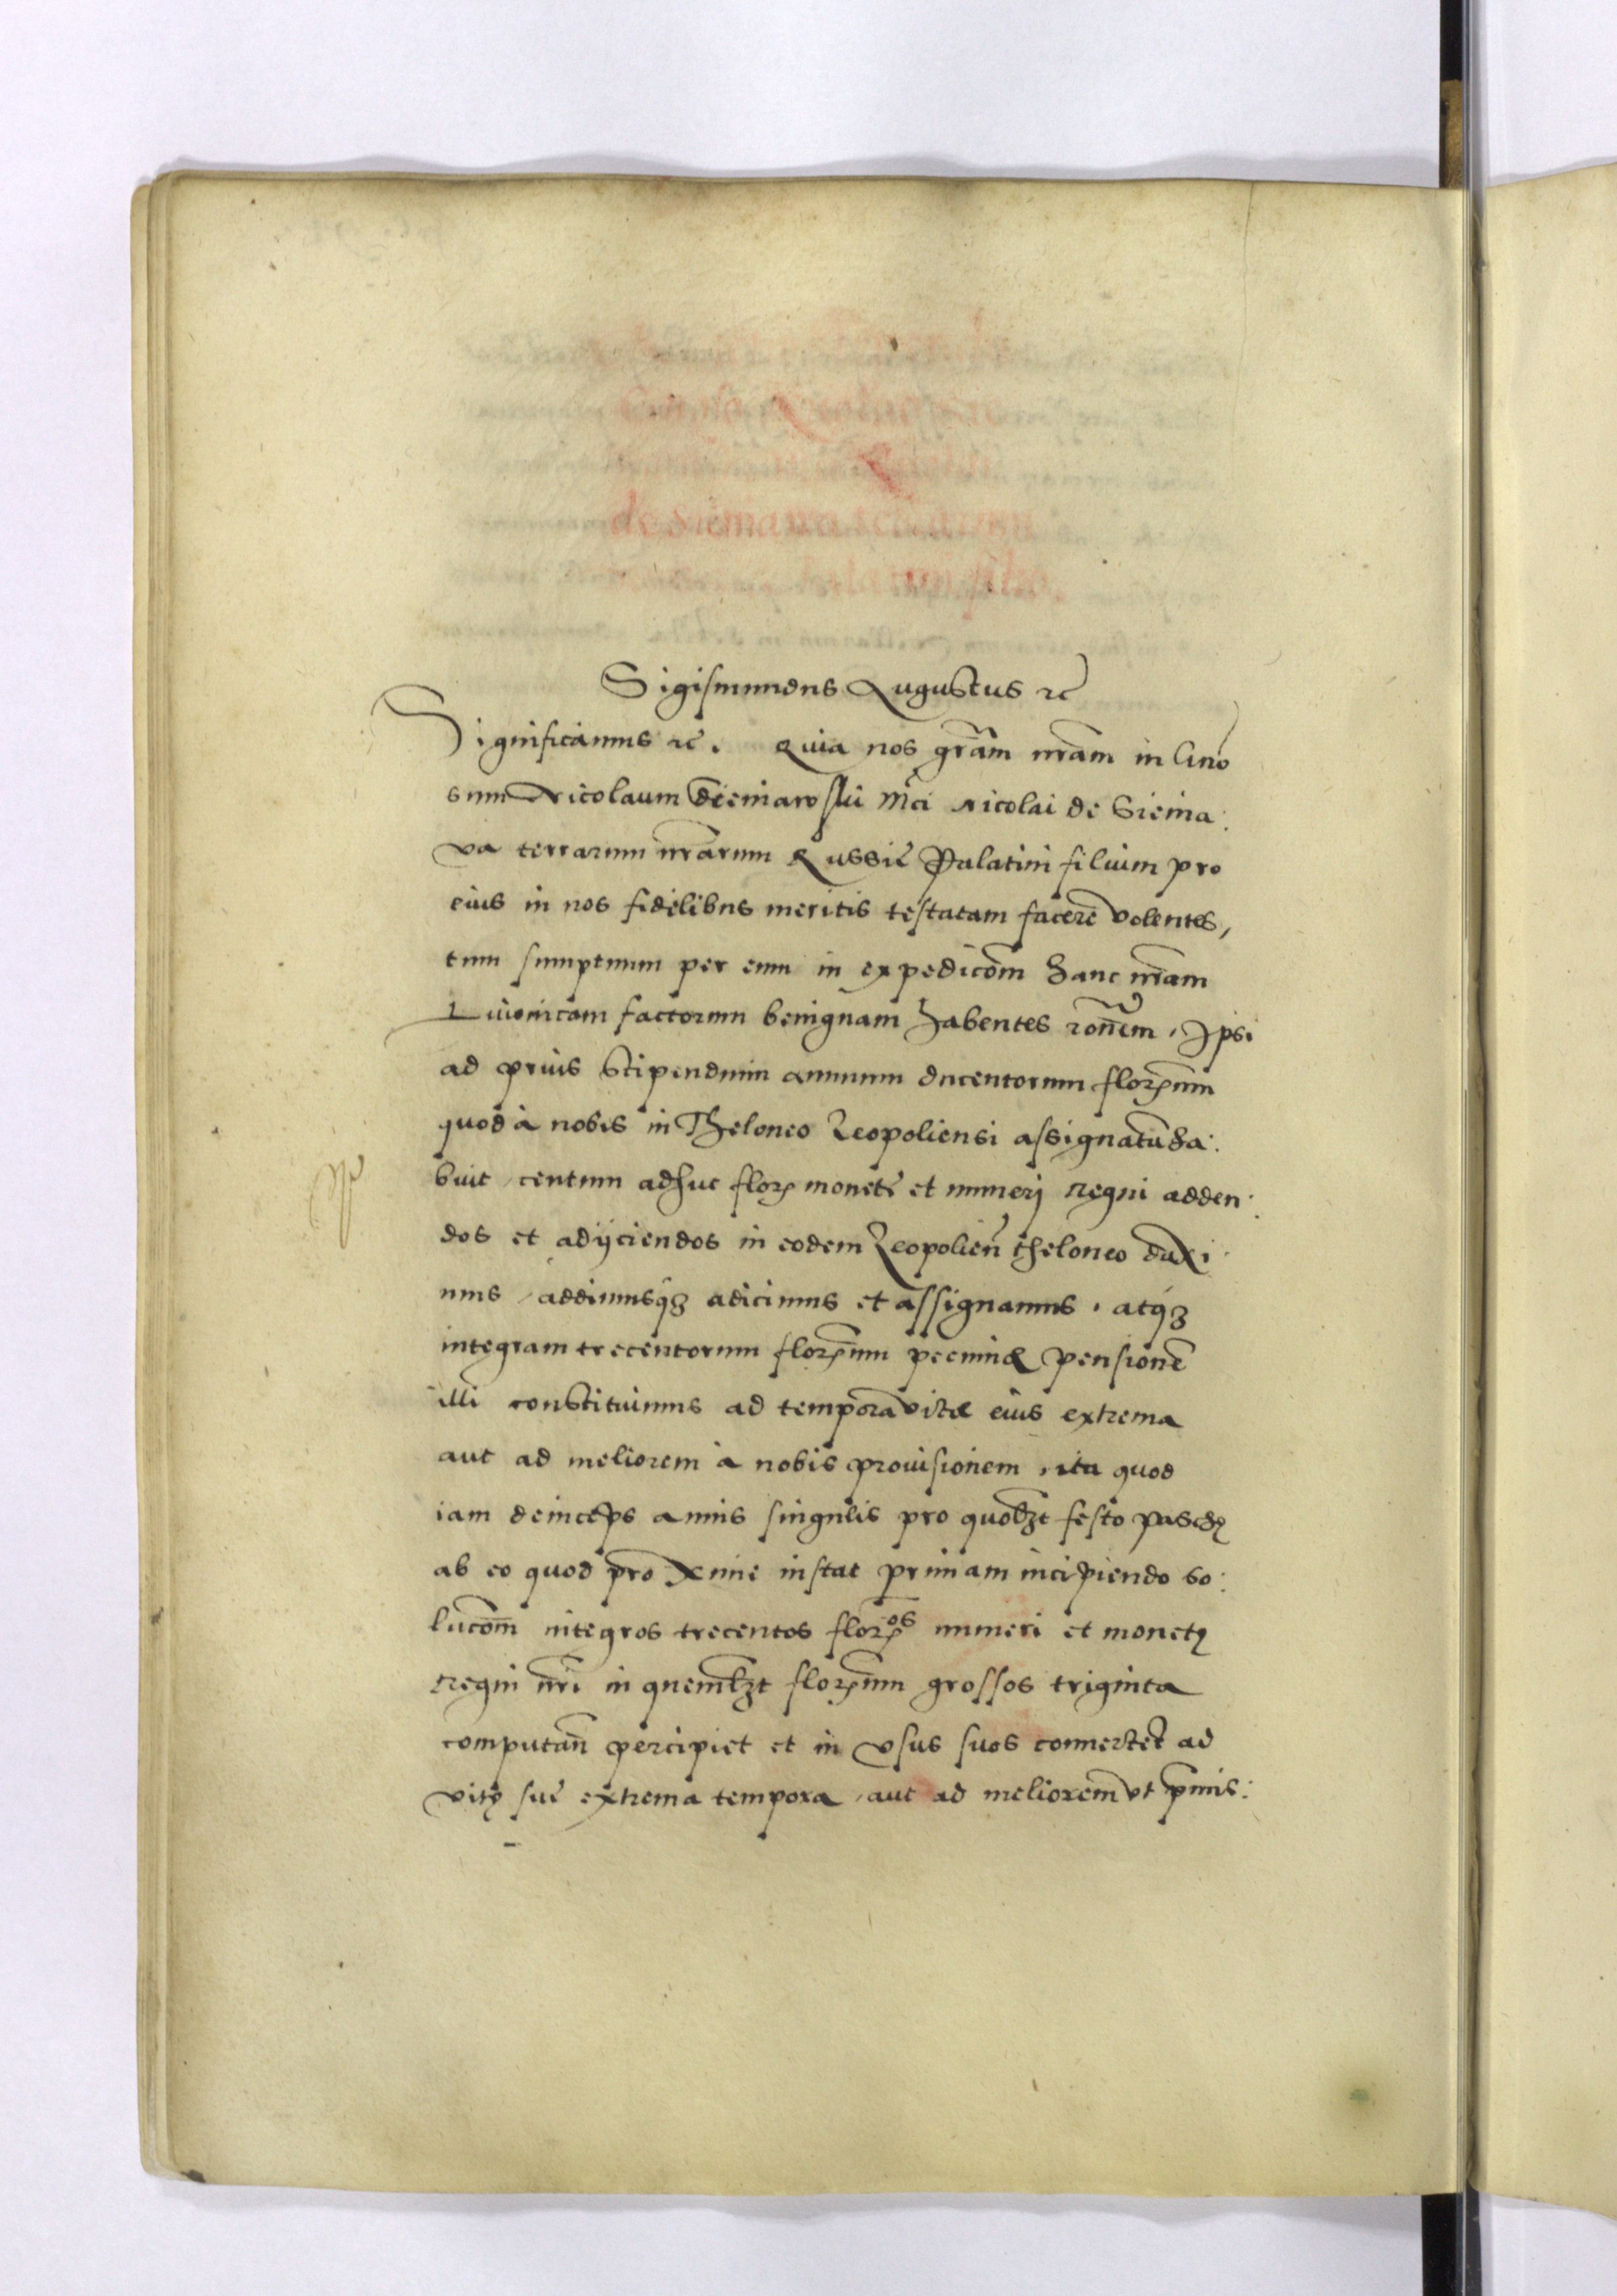 Sigismundus Augustus rc̃
Significamus rc̃. Quia nos grãm nrãm in Gño
sum Nicolaum Sieniawski Mci Nicolai de Sienia:
va terrarum nrãrum Russie Palatini filium pro
eius in nos fidelibus meritis testatam facere volentes,
tum sumptuum per eum in expedicõm hanc nrãm
Livonicam factorum benignam habentes rõnem, Ipsi
ad prius Stipendium annuum ducentorum florenum
quod à nobis in Theloneo Leopoliensi assignatũ ha:
buit, centum adhuc flor monete et numerj Regni adden:
dos et adijciendos in eodem Leopolieñ theloneo duxi:
mus, addimusq3 adicimus et assignamus, atq3
integram trecentorum florenum pecuniæ pensionẽ
illi constituimus ad tempora vitæ eius extrema
aut ad meliorem à nobis provisionem, ita quod
iam deinceps annis singulis pro quolzt festo paschę
ab eo quod proxime instat primam incipiendo so:
lucõm integros trecentos florᵒˢ numeri et monetę
Regni nrĩ in quemlzt florenum grossos triginta
computañ percipiet et in vsus suos convertet ad
vitę sue extrema tempora, aut ad meliorem vt pmis: